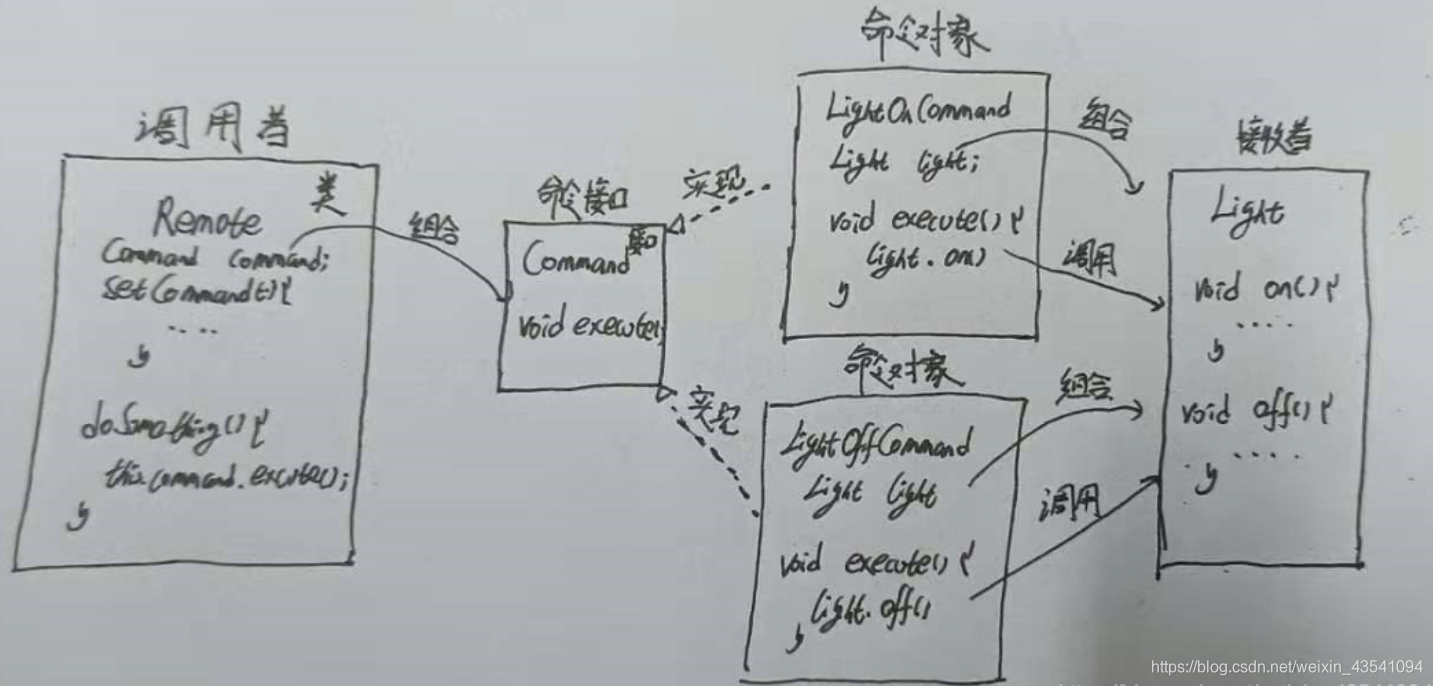 调用者
类
Remote
Command command;
setCommand(){
....
}
doSomathing(){
this.command.execute();
}
组合
命令接口
接口
Command
void execute();
实现
实现
命令对象
LightOnCommand
Light light;
void execute(){
light.on()
}
组合
调用
命令对象
LightOffCommand
Light light
void execute(){
light.off()
}
组合
调用
接收者
Light
void on(){
....
}
void off(){
....
}
https://blog.csdn.net/weixin_43541094